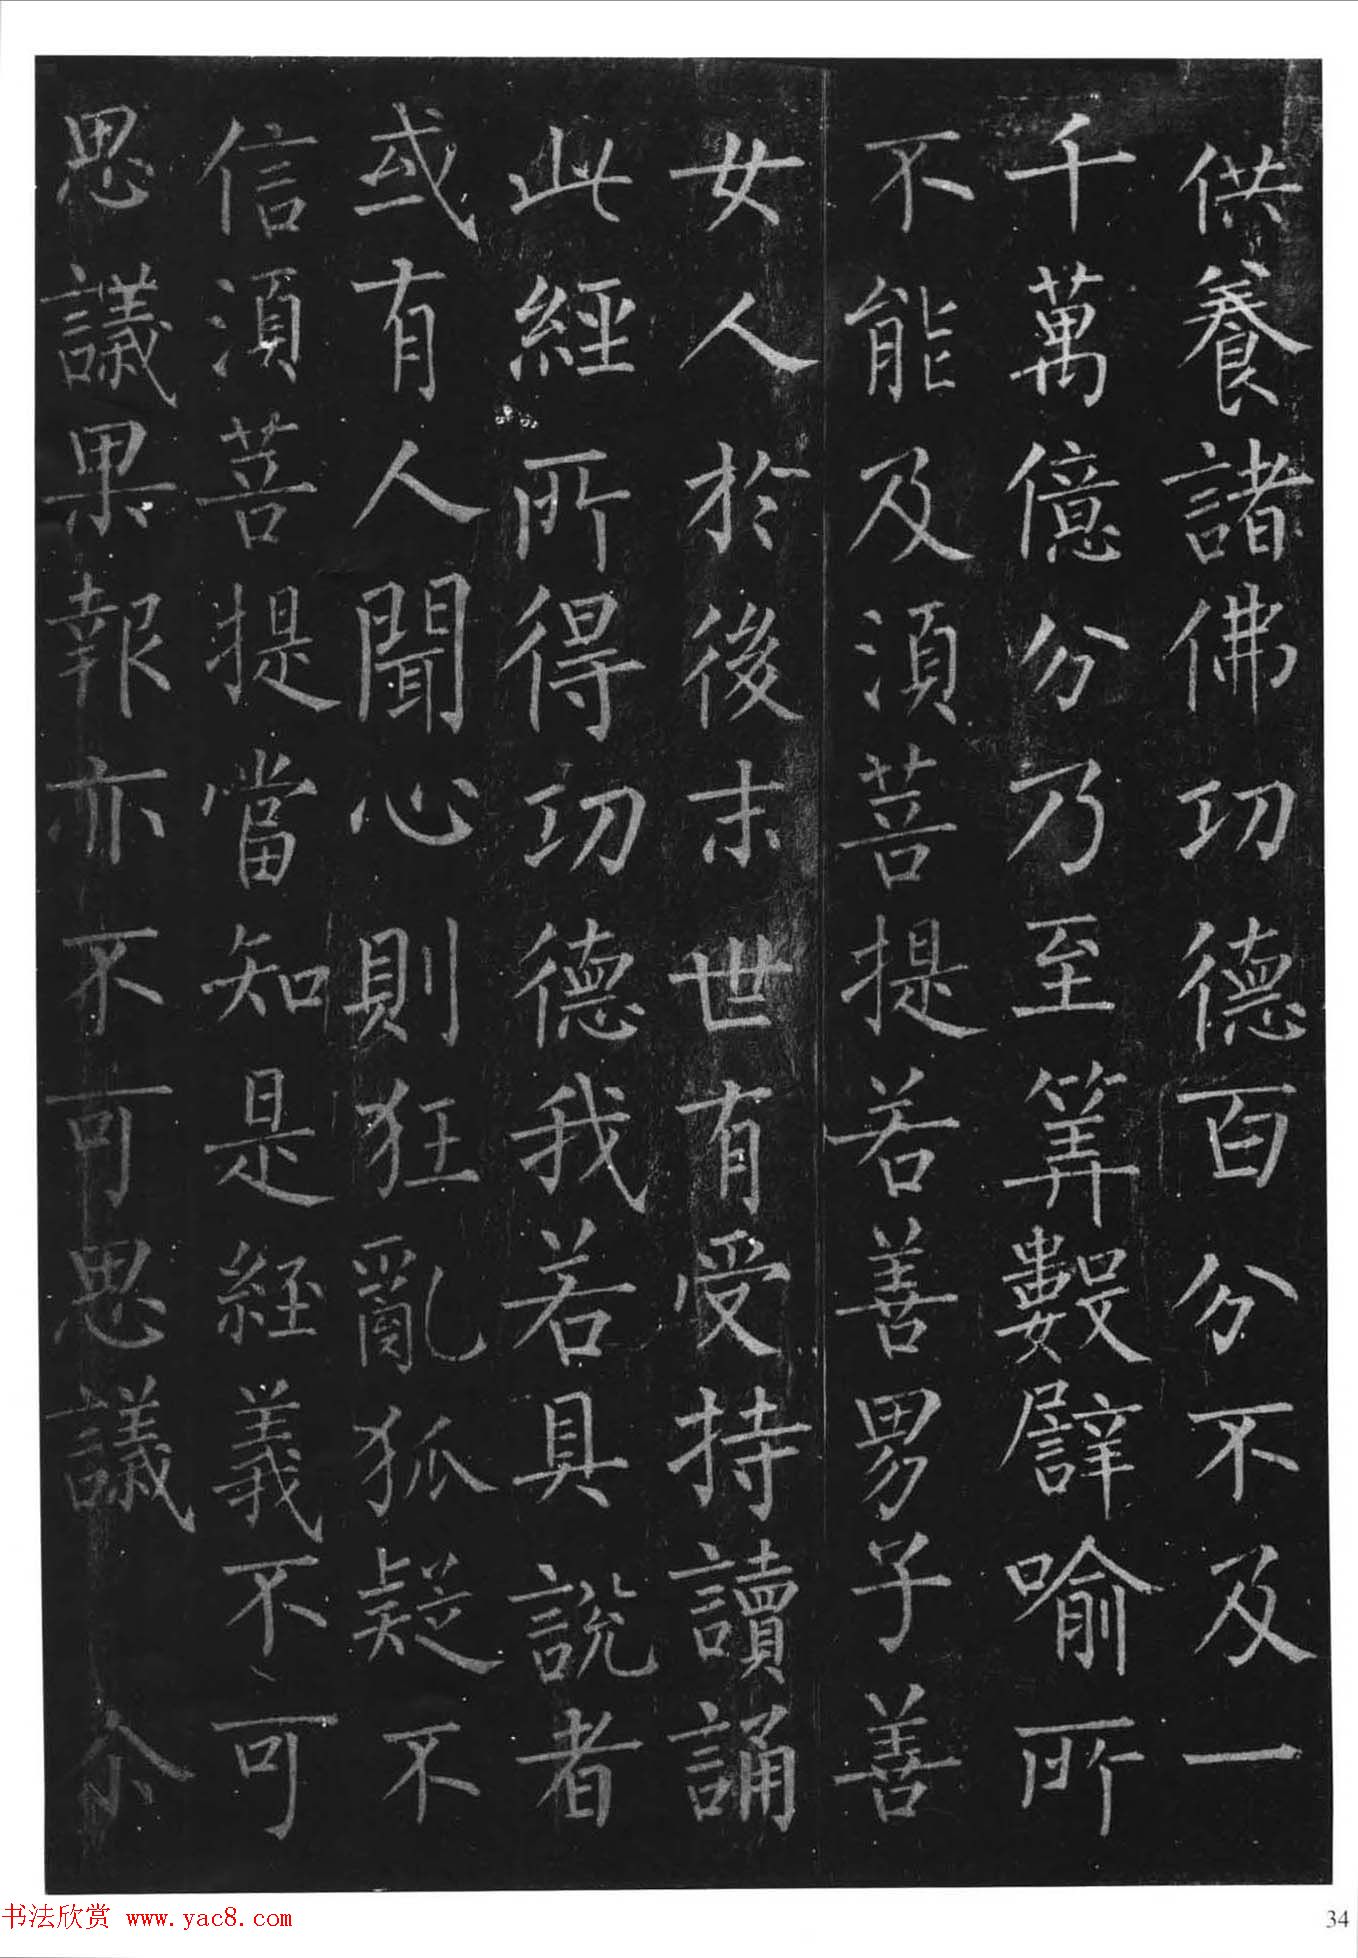 供養諸佛功德百分不及一
千萬億分乃至筭數譬喻所
不能及須菩提若善男子善
女人於後末世有受持讀誦
此經所得功德我若具說者
或有人聞心則狂亂狐疑不
信須菩提當知是經義不可
思議果報亦不可思議 尒
书法欣赏 www.yac8.com
34